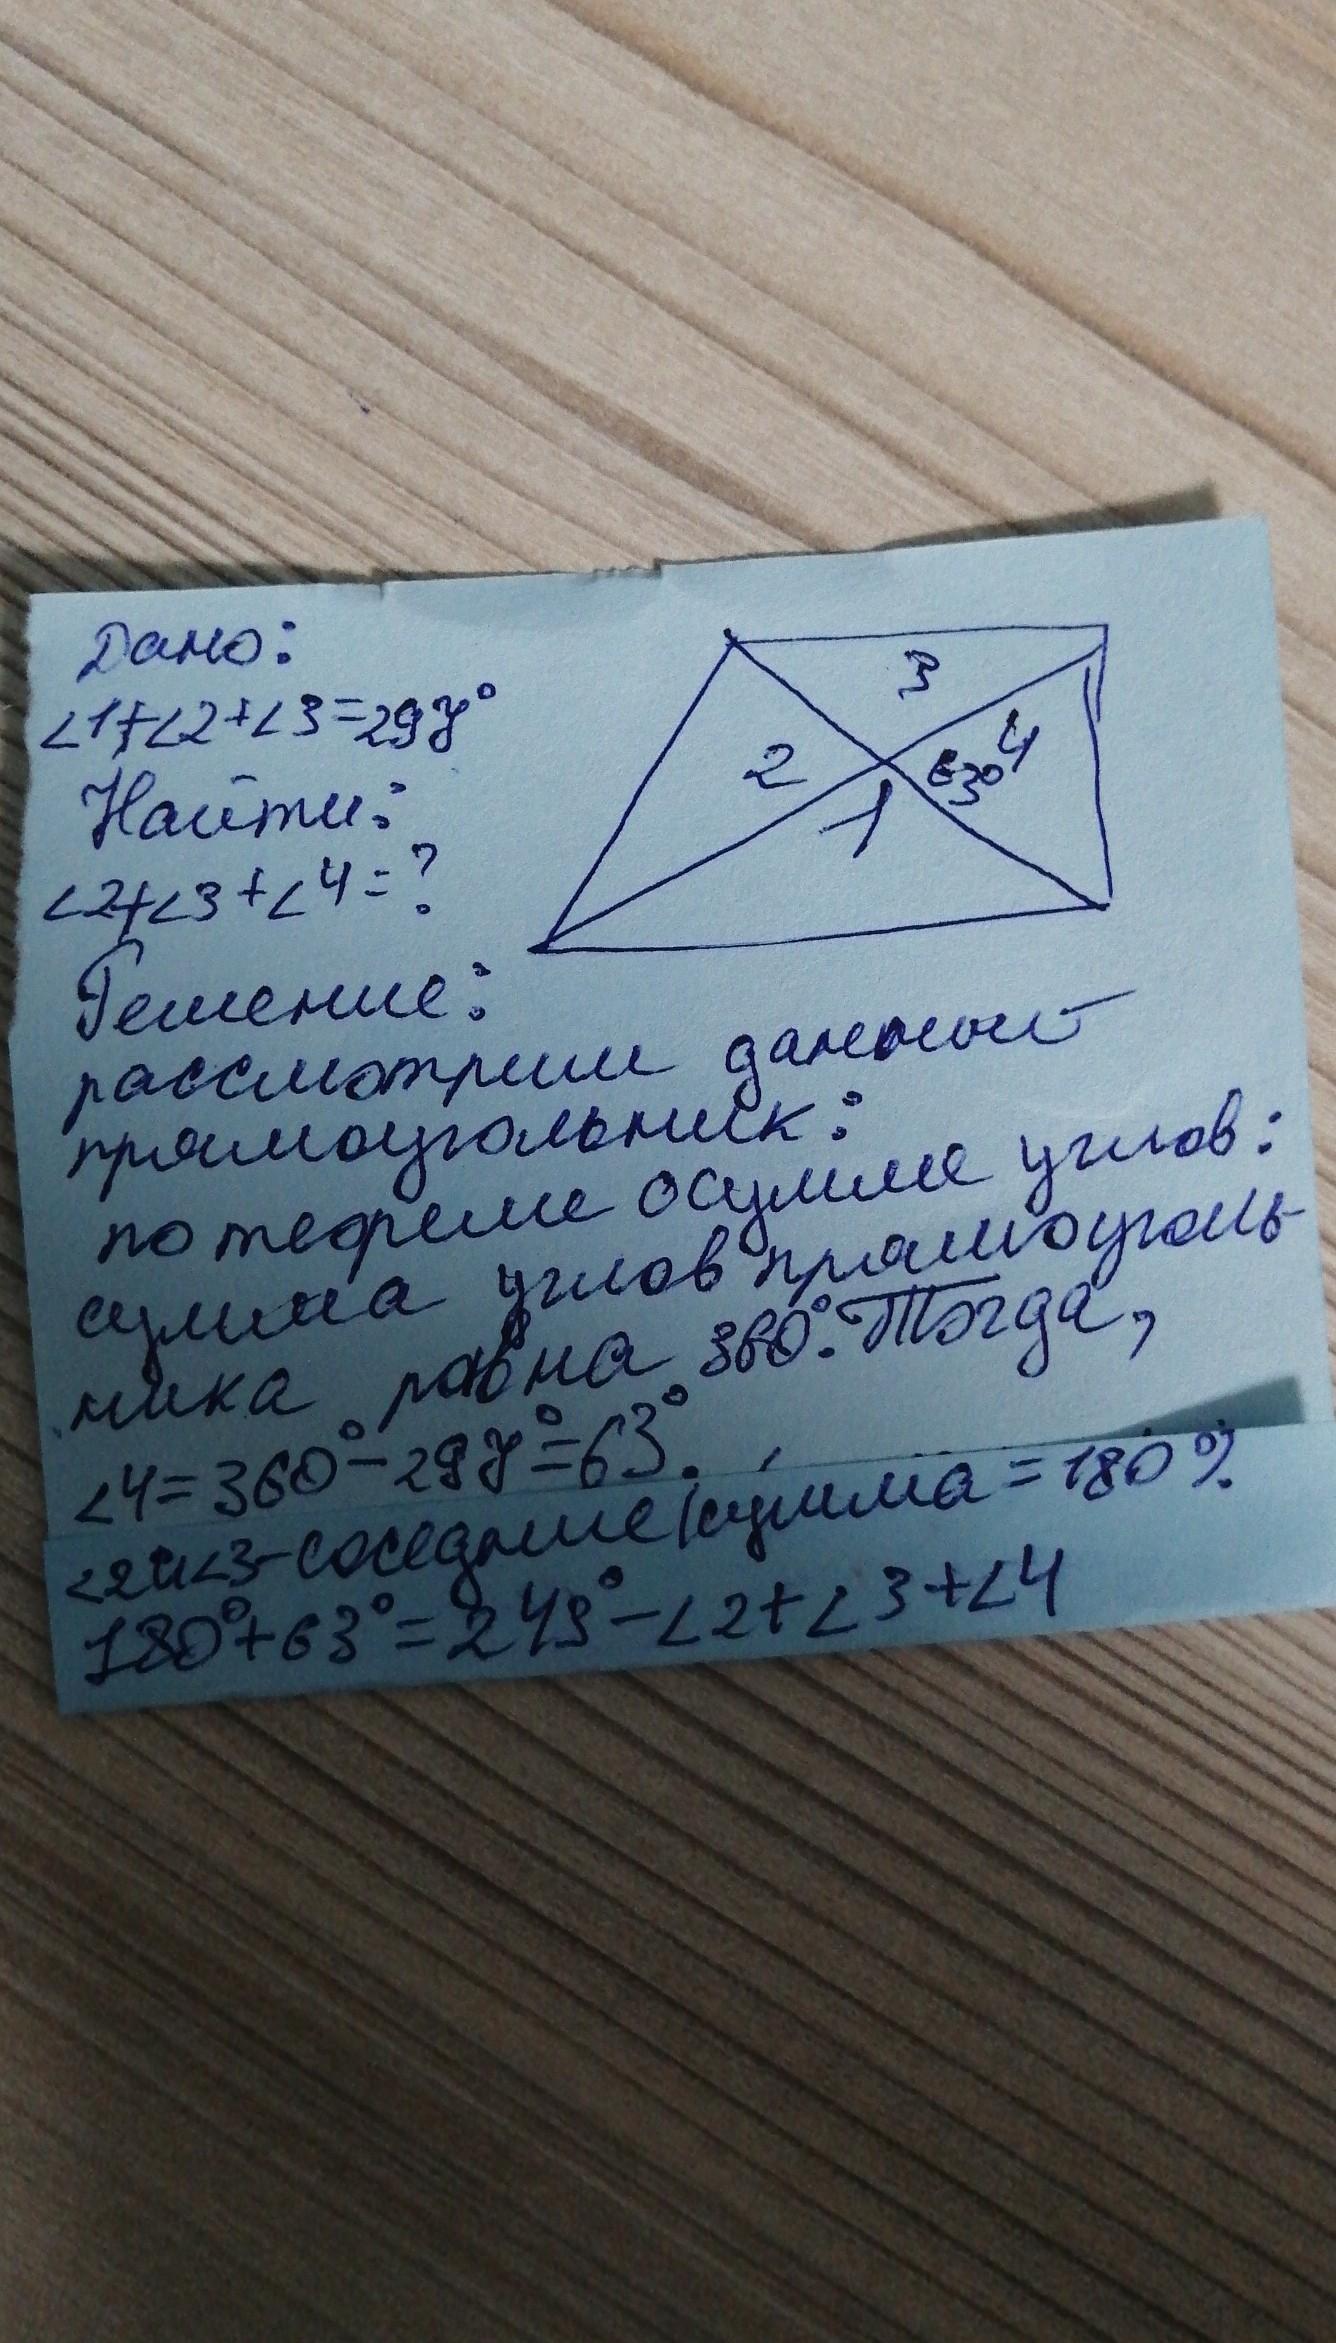 Дано:
∠1+∠2+∠3=297°
Найти:
∠2+∠3+∠4=?
3
2
4
63°
1
Решение:
рассмотрим данный
прямоугольник:
по теореме о сумме углов:
сумма углов прямоуголь-
ника равна 360°. Тогда,
∠4=360°-297°=63°.
∠2и∠3-соседние(сумма=180°).
180°+63°=243°-∠2+∠3+∠4